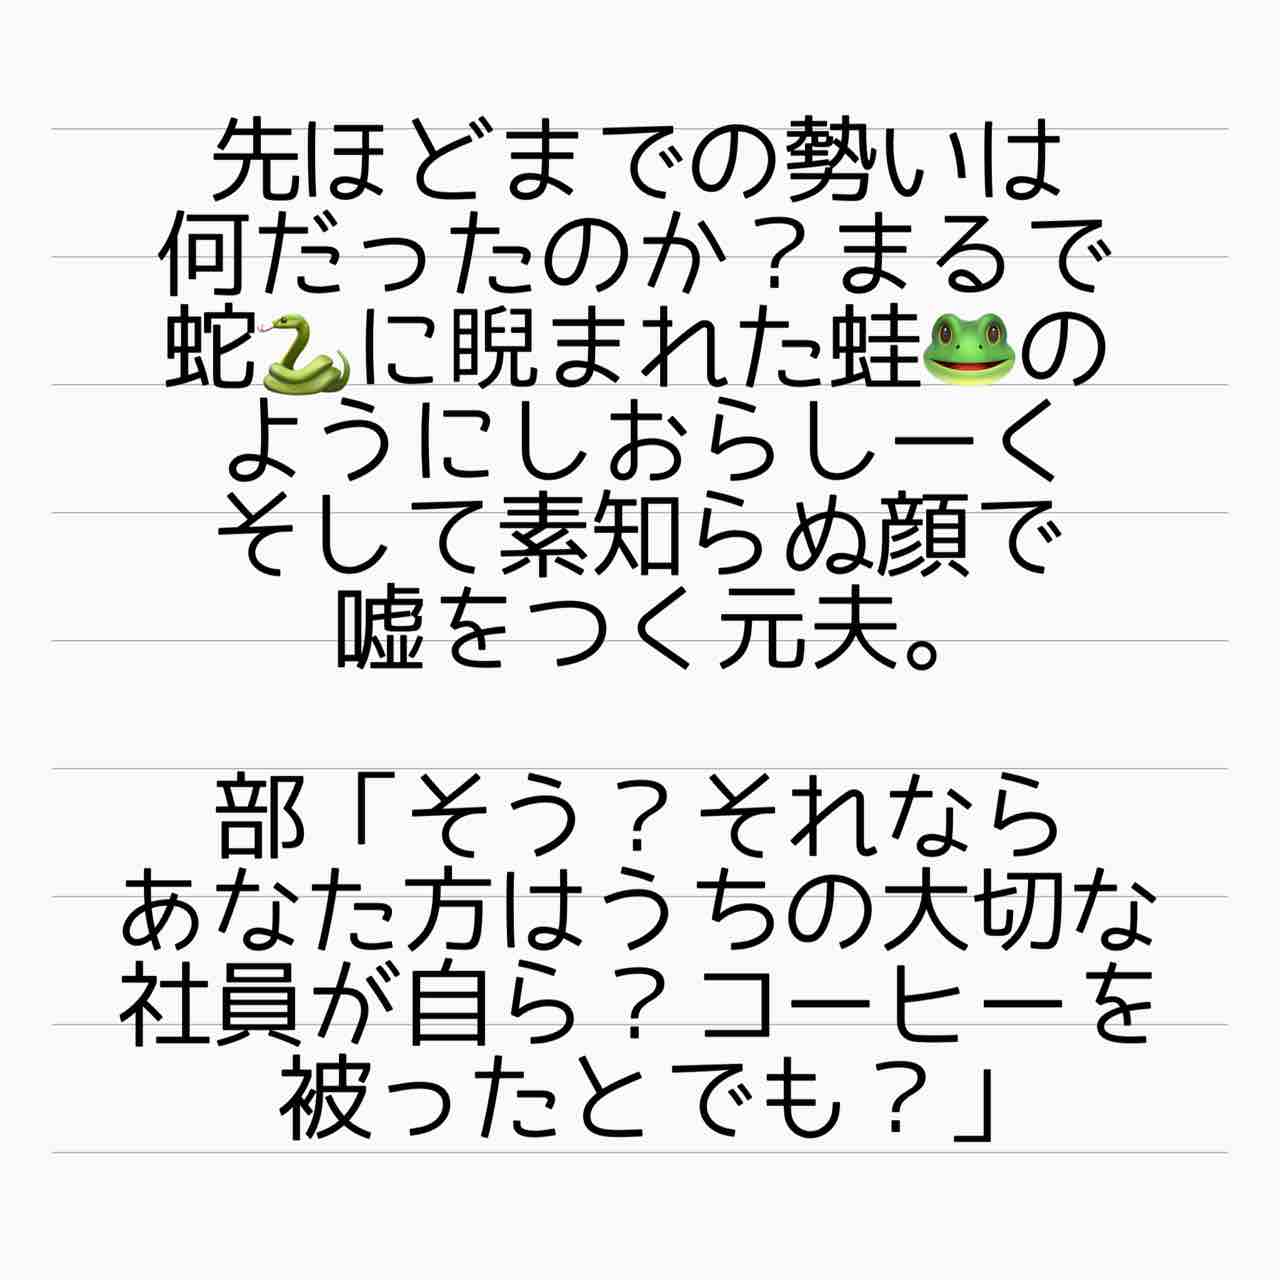 先ほどまでの勢いは
何だったのか？まるで
蛇🐍に睨まれた蛙🐸の
ようにしおらしーく
そして素知らぬ顔で
嘘をつく元夫。
部「そう？それなら
あなた方はうちの大切な
社員が自ら？コーヒーを
被ったとでも？」